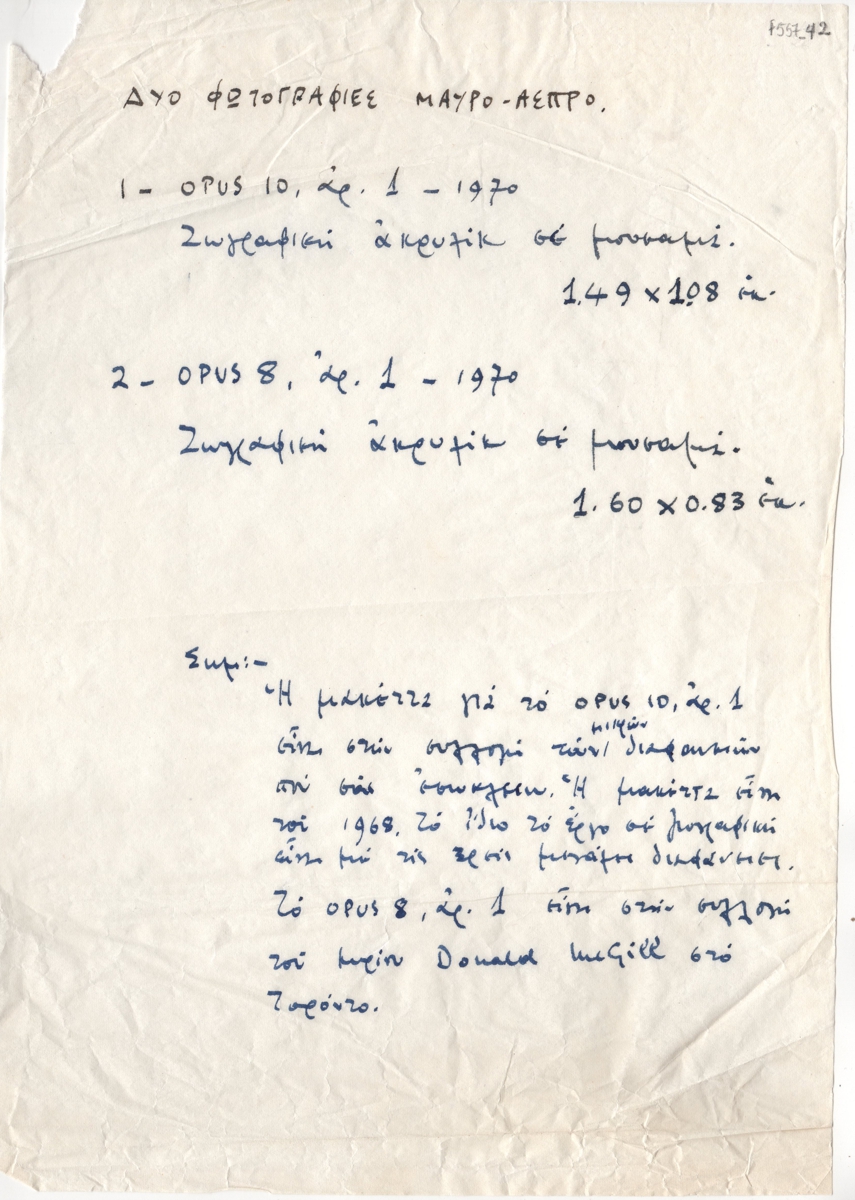 f557_42
ΔΥΟ ΦΩΤΟΓΡΑΦΙΕΣ ΜΑΥΡΟ-ΑΣΠΡΟ.
1 - OPUS 10, ἀρ. 1 - 1970
Ζωγραφική ἀκρυλίκ σέ μουσαμά.
1.49 x 1.08 ἑκ.
2 - OPUS 8, ἀρ. 1 - 1970
Ζωγραφική ἀκρυλίκ σέ μουσαμά.
1.60 x 0.83 ἑκ.
Σημ:-
Ἡ μακέττα γιά τό OPUS 10, ἀρ. 1
εἶναι στήν συλλογή τῶν μικρῶν διαφανειῶν
πού σᾶς ἐσωκλείω. Ἡ μακέττα εἶναι
τοῦ 1968. Τό ἴδιο τό ἔργο σέ ζωγραφική
εἶναι μιά τίς τρεῖς μεγάλες διαφάνειες.
Τό OPUS 8, ἀρ. 1 εἶναι στήν συλλογή
τοῦ κυρίου Donald McGill στό
Τορόντο.